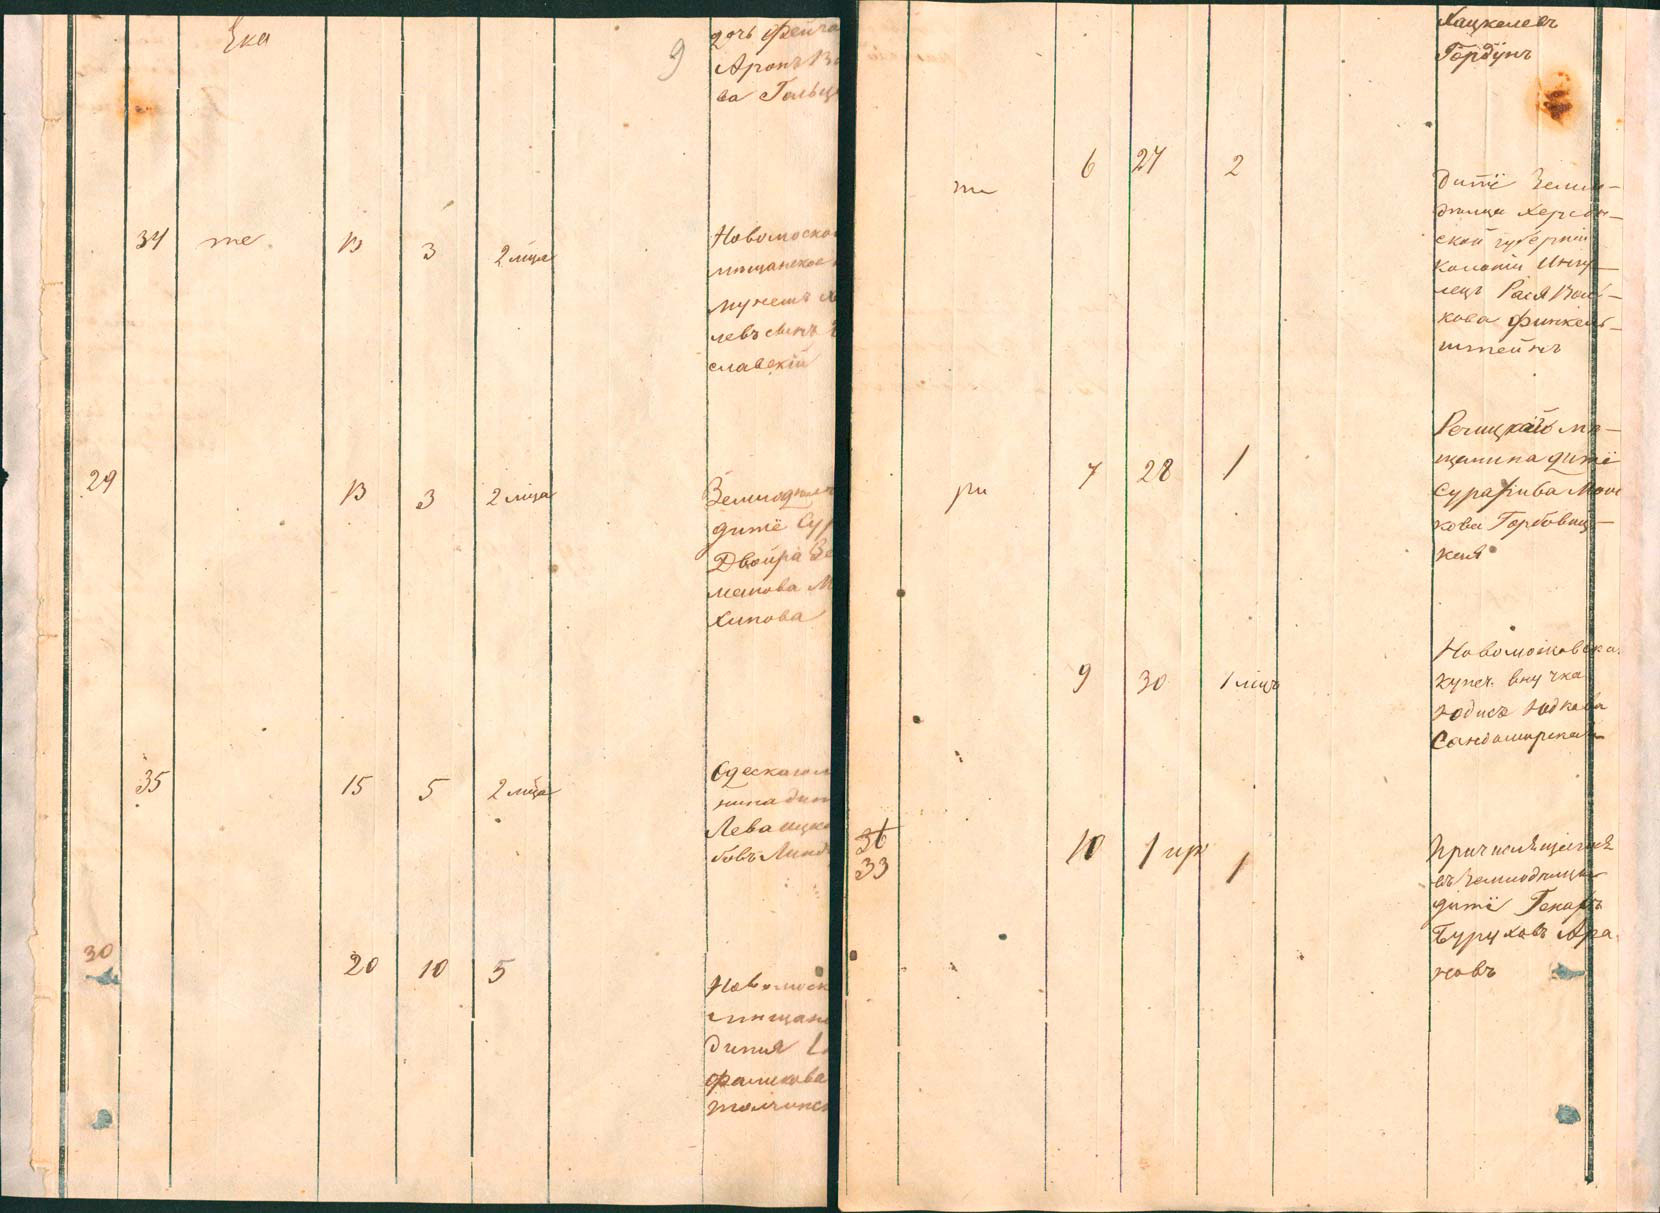 Ека
9
дочь Фейга
Аронъ
ва Гольц
34 же 13 3 2 мца
Новомоско
мѣщанское
левъ сынъ
славскій
29 13 3 2 мца
Земледѣль
дитё Сур
Двойра Зе
манова М
хинова
35 15 5 2 мца
Одескаго м
нина дит
Лева Ицко
бовъ Линд
30 20 10 5
Новомоск
мѣщан
Фаликова
Хацкелевъ
Гордунъ
же 6 27 2
дитё Земле-
дѣльца Херсон-
ской губерніи
Колоніи Ингу-
лецъ Рася Вол-
кова Финкель-
штейнъ
ри 7 28 1
Речицкаго мѣ-
щанина дитё
Сура Рива Мош
кова Горбовиц-
кая
9 30 1 мцъ
Новомосковско
купеч. внучка
Юдись Юдкова
Сандомирская
36
33
10 1 ирк 1
Причисляющагося
въ Земледѣльцы
дитё
Буруховъ Аро
новъ